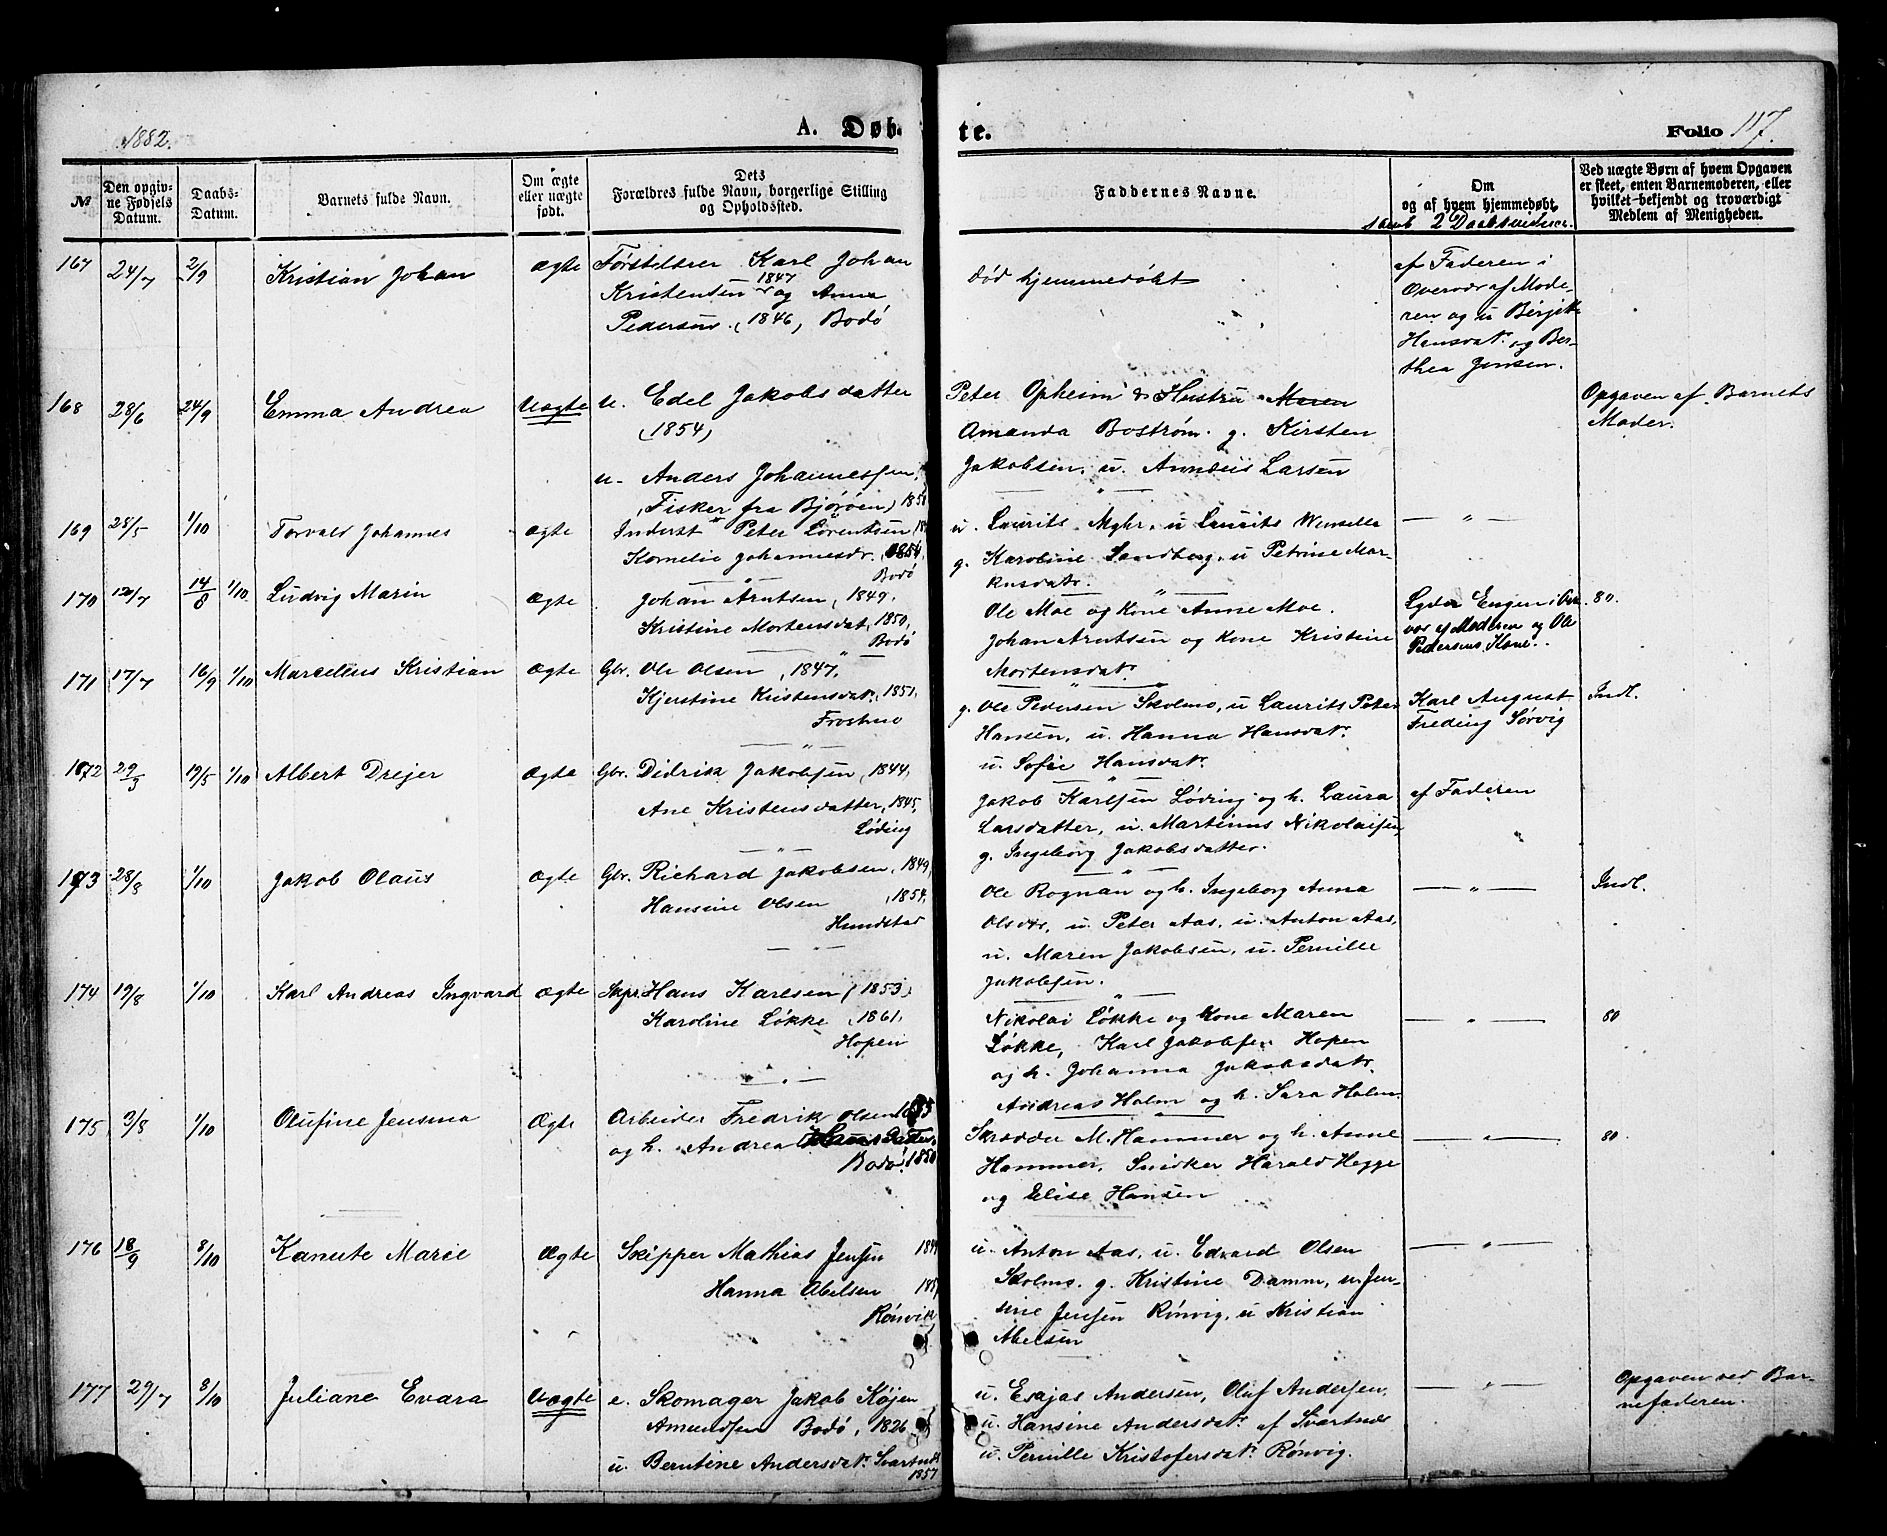 1882.
A. Døb-
te.
Folio 117.
№
Den opgiv-
ne Fødsels
Datum.
Daabs-
Datum.
Barnets fulde Navn.
Om ægte
eller uægte
født.
Dets
Forældres fulde Navn, borgerlige Stilling
og Opholdssted.
Faddernes Navne.
Om
og af hvem hjemmedøbt.
samt 2 Daabsvidner.
Ved uægte Børn af hvem Opgaven
er skeet, enten Barnemoderen, eller
hvilket bekjendt og troværdigt
Medlem af Menigheden.
167 24/7 2/9 Kristian Johan ægte Karl Johan
Kristensen 1847 og Anna
Pedersen (1846) Bodø
død hjemmedøbt
af Faderen i
Overvær af Mode-
ren og u Berjitte
Hansdatr og Ber-
thea Jensen.
168 28/6 24/9 Emma Andrea Uægte u. Edel Jakobsdatter
(1854)
u. Anders Johannessen,
(Fisker fra Bjørøen)
Peter Opheim & Hustru Maren
Amanda Bostrøm. g. Kirsten
Jakobsen, u. Annæus Larsen
Opgaven af Barnets
Moder.
169 28/5 1/10 Torvald Johannes ægte Inderst Peter Lorentsen
Kornelie Johannesdr. 1854,
Bodø
u. Laurits Myhr, u Laurits
g. Karoline Sandberg, u Petrine Mar-
kusdatr.
— " —
170 12/7 14/8 1/10 Ludvig Marin Ægte Johan Arntsen, 1849,
Kristine Mortensdat, 1850,
Bodø
Ole Moe og Kone Anne Moe.
Johan Arntsen og Kone Kristine
Mortensdatr.
Lyder Engen i Over
vær af Moderen og Ole
Pedersens Kone.
80.
171 17/7 16/9 1/10 Marcelius Kristian Ægte Gbr. Ole Olsen, 1847,
Kjerstine Kristensdatr, 1851,
Frostmo
g. Ole Pedersen Skolmo, u Laurits Peter
Hansen, u. Hanna Hansdatr.
u. Sofie Hansdatr.
Karl August
Freding Sørvig
Indl.
172 29/3 19/5 1/10 Albert Drejer Ægte Gbr. Didrik Jakobsen, 1844,
Ane Kristensdatter, 1845,
Løding
Jakob Karlsen Løding og h. Laura
Larsdatter, u. Martinus Nikolaisen,
g. Ingeborg Jakobsdatter.
af Faderen
173 28/8 1/10 Jakob Olaus Ægte Gbr. Richard Jakobsen, 1849,
Hansine Olsen, 1854,
Hundstad
Ole Rognan og h. Ingeborg Anna
Olsdr, u. Peter Aas, u. Anton Aas,
u. Maren Jakobsen, u. Pernille
Jakobsen.
— " —
Indl.
174 19/8 1/10 Karl Andreas Ingvard Ægte Skpr. Hans Karlsen (1853)
Karoline Løkke, 1861,
Hopen
Nikolai Løkke og Kone Maren
Løkke, Karl Jakobsen Hopen
og h. Johanna Jakobsdatr.
Andreas Holm og h. Sara Holm.
— " —
80
175 3/8 1/10 Olufine Jensina Ægte Arbeider Fredrik Olsen
og h. Andrea
Bodø. 1850
Skrædder M. Hammer og h. Anne
Hammer, Snidker Harald Hegge
og Elise Hansen
— " —
80.
176 18/9 8/10 Kanute Marie Ægte Skipper Mathias Jensen
Hanna Abelsen
Rønvik
u. Anton Aas, u. Edvard Olsen
Skolmo. g. Kristine Damm, u. Jen-
sine Jensen Rønvig, u Kristian
Abelsen
— " —
177 29/7 8/10 Juliane Evara Uægte e. Skomager Jakob Køjen
Amundsen Bodø, 1826
u. Berntine Andersdatr. Svartnes
1857
u. Esajas Andersen, Oluf Andersen,
u. Hansine Andersdatr. af Svartnes
u. Pernille Kristofersdatr. Rønvig.
— " —
Opgaven ved Bar-
nefaderen.